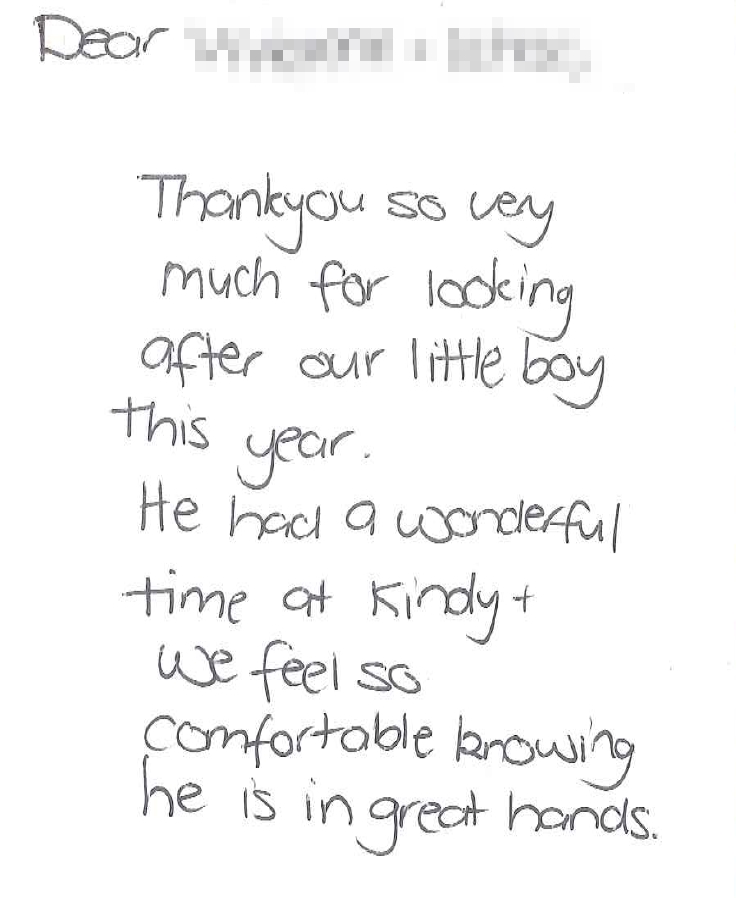 Dear
Thankyou so very
much for looking
after our little boy
this year.
He had a wonderful
time at Kindy +
we feel so
comfortable knowing
he is in great hands.